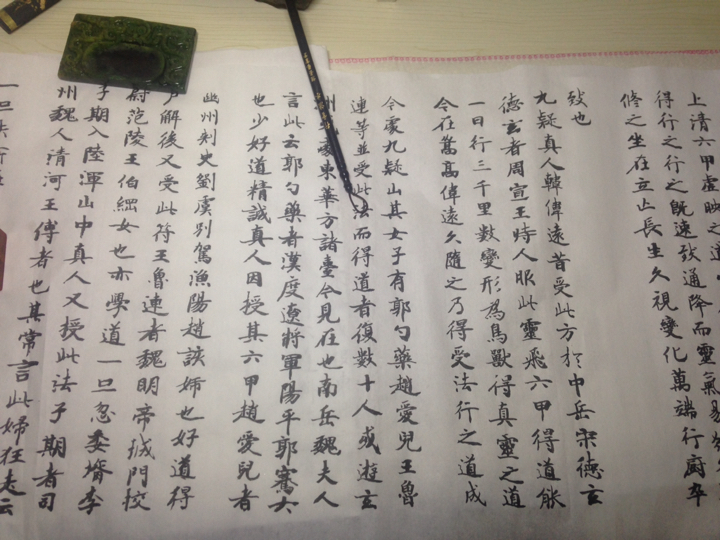 上清六甲虛映之道
得行之行之既速致通降而靈氣易
修之坐在立亡長生久視變化萬端行廚卒
致也
九疑真人韓偉遠昔受此方於中岳宋德玄
德玄者周宣王時人服此靈飛六甲得道能
一日行三千里數變形為鳥獸得真靈之道
今在嵩高偉遠久隨之乃得受法行之道成
今處九疑山其女子有郭勺藥趙愛兒王魯
連等並受此法而得道者復數十人或遊玄
州或處東華方諸臺今見在也南岳魏夫人
言此云郭勺藥者漢度遼將軍陽平郭騫女
也少好道精誠真人因授其六甲趙愛兒者
幽州刺史劉虞別駕漁陽趙該姊也好道得
尸解後又受此符王魯連者魏明帝城門校
尉范陵王伯綱女也亦學道一旦忽委壻李
子期入陸渾山中真人又授此法子期者司
州魏人清河王傅者也其常言此婦狂走云
一旦失所在